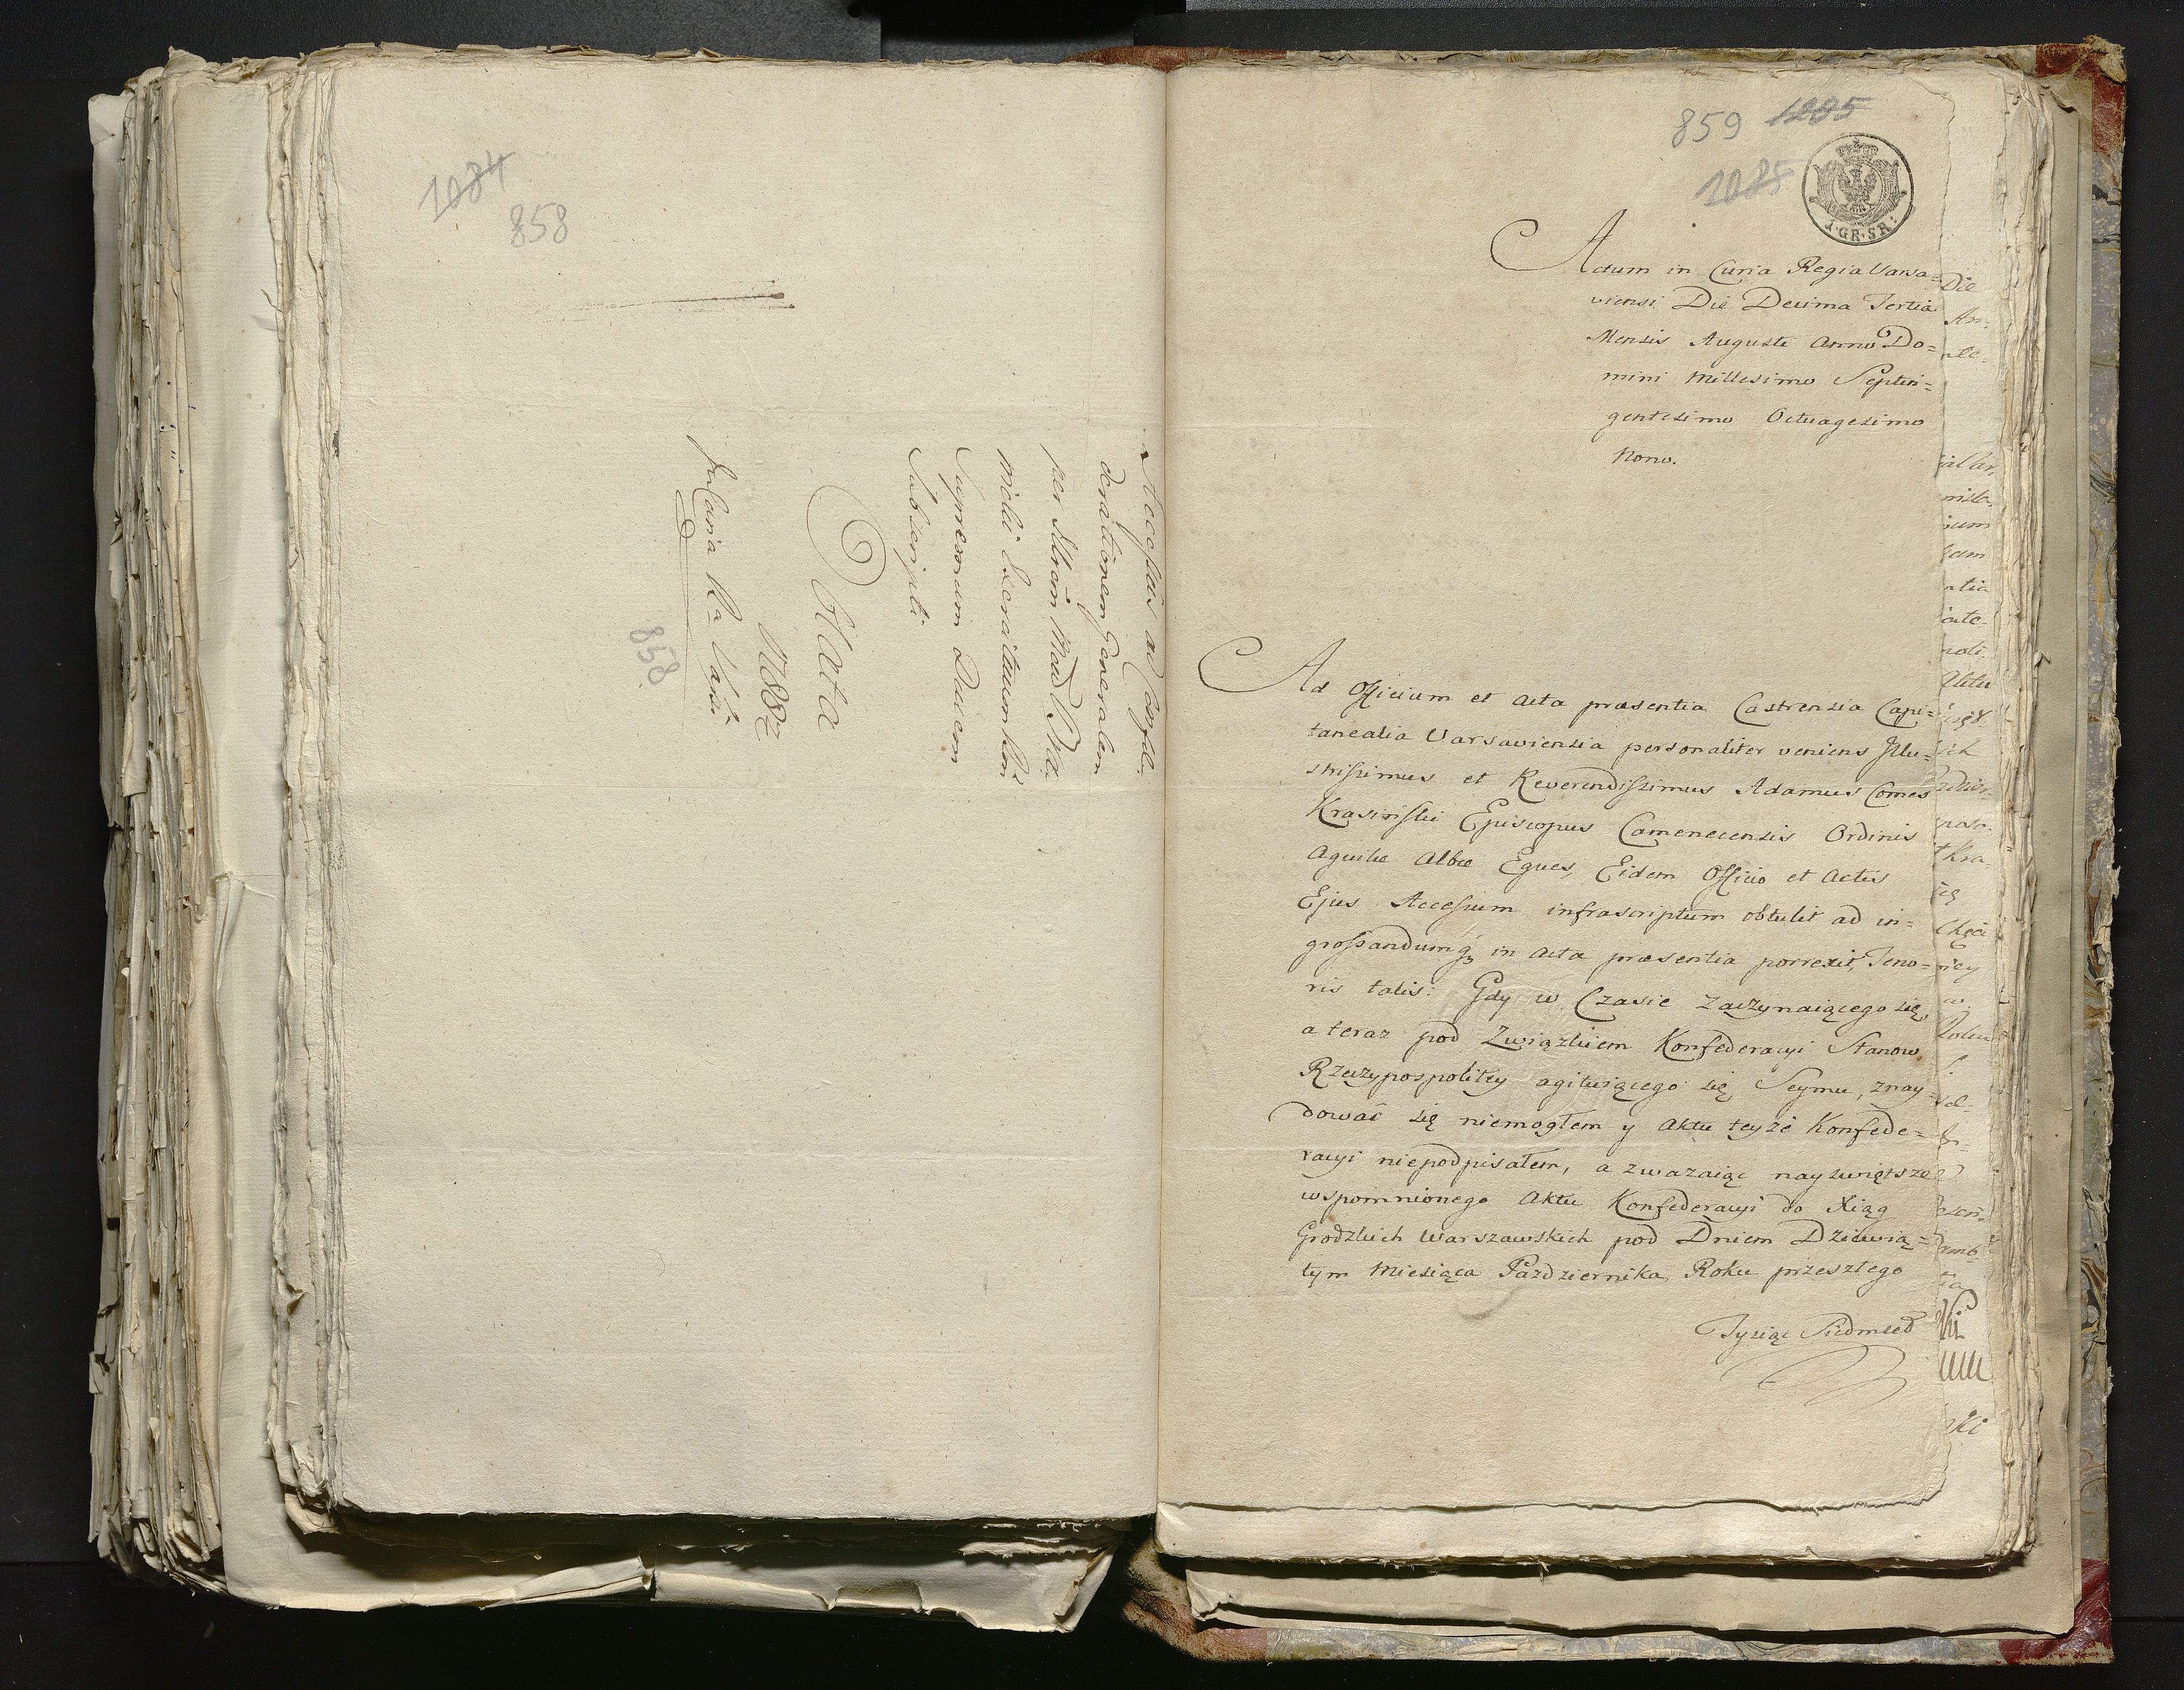 1084
858
Accessus ad Confæ-
derationem Generalem
per Illrem
Supremum Ducem
Subscripti
Oblata
1788
858
859 1205
1085
1·GR·SR:
Actum in Curia Regia Varsa-
viensi Die Decima Tertia
Mensis Augusti Anno Do=
mini Millesimo Septin=
gentesimo Octuagesimo
Nono.
Ad Officium et Acta præsentia Castrensia Capi=
tanealia Varsaviensia personaliter veniens Illu=
strissimus et Reverendissimus Adamus Comes
Krasiński Episcopus Camenecensis Ordinis
Aquilæ Albæ Eques, Eidem Officio et Actis
Ejus Accessum infrascriptum obtulit ad in=
grossandumq3 in Acta præsentia porrexit, Teno=
ris talis: Gdy w Czasie zaczynaiącego się,
a teraz pod Związkiem Konfederacyi Stanow
Rzeczypospolitey agituiącego się Seymu, znay=
dować się niemogłem y Aktu teyże Konfede=
racyi niepodpisałem, a zwazaiąc
wspomnionego Aktu Konfederacyi do Xiąg
Grodzkich Warszawskich pod Dniem Dziewią=
tym Miesiąca Października Roku przeszłego
Tysiąc Siedmset